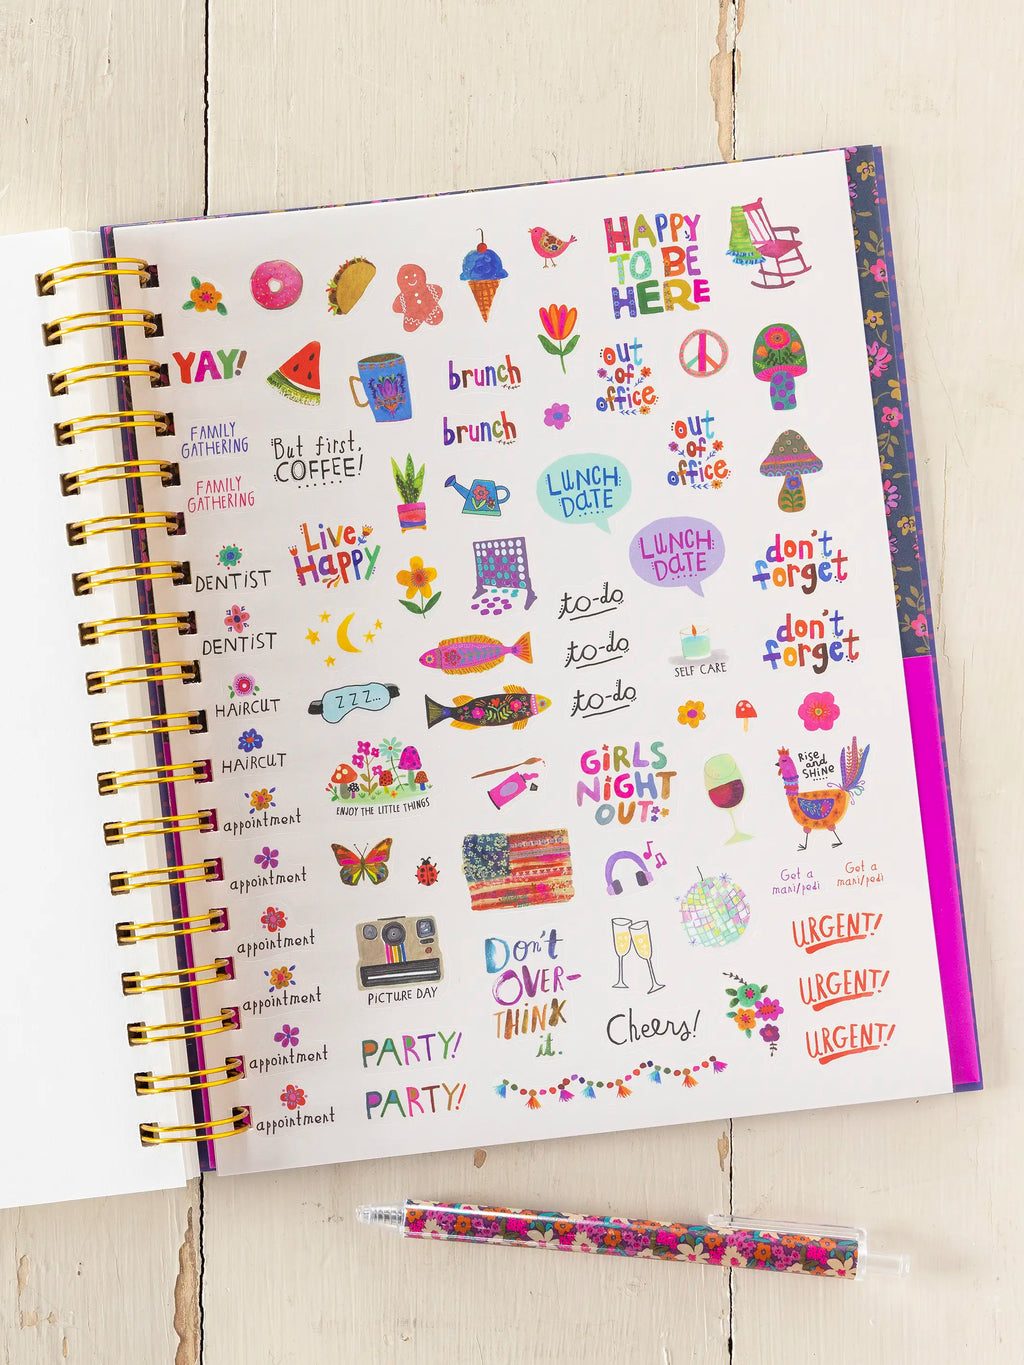 HAPPY
TO BE
HERE
YAY!
brunch
out
of
office
FAMILY
GATHERING
But first,
COFFEE!
brunch
out
of
office
FAMILY
GATHERING
LUNCH
DATE
Live
Happy
LUNCH
DATE
don't
forget
DENTIST
to-do
DENTIST
to-do
SELF CARE
don't
forget
HAIRCUT
ZZZ...
to-do
HAIRCUT
ENJOY THE LITTLE THINGS
GIRLS
NIGHT
OUT
RISE
and
SHINE
appointment
appointment
Get a
mani/pedi
Get a
mani/pedi
appointment
PICTURE DAY
DON'T
OVER-
THINK
it.
URGENT!
appointment
URGENT!
appointment
PARTY!
Cheers!
URGENT!
appointment
PARTY!